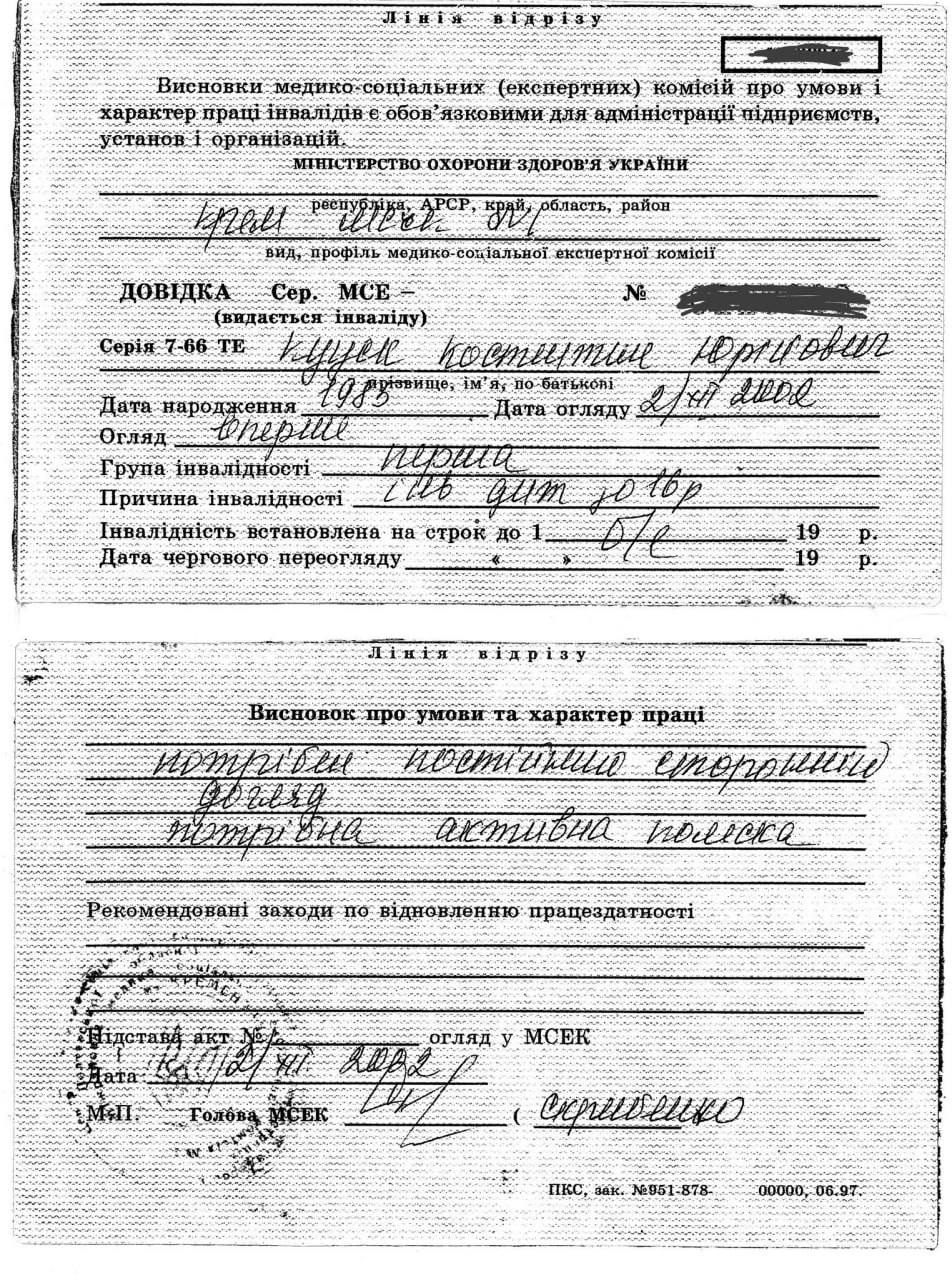 Лінія відрізу
Висновки медико-соціальних (експертних) комісій про умови і
характер праці інвалідів є обов'язковими для адміністрації підприємств,
установ і організацій.
МІНІСТЕРСТВО ОХОРОНИ ЗДОРОВ'Я УКРАЇНИ
республіка, АРСР, край, область, район
МСЕК №1
вид, профіль медико-соціальної експертної комісії
ДОВІДКА Сер. МСЕ – №
(видається інваліду)
Серія 7-66 ТЕ Юрійович
прізвище, ім'я, по батькові
Дата народження 1985 Дата огляду 2/XII 2002
Огляд вперше
Група інвалідності перша
Причина інвалідності інв дит до 16р
Інвалідність встановлена на строк до 1 б/с 19 р.
Дата чергового переогляду « » 19 р.
Лінія відрізу
Висновок про умови та характер праці
потрібен постійний сторонній
догляд
потрібна активна коляска
Рекомендовані заходи по відновленню працездатності
Підстава акт № огляд у МСЕК
Дата 2/XII 2002
М.П. Голова МСЕК ( Скрибенко
ПКС, зак. №951-878- 00000, 06.97.